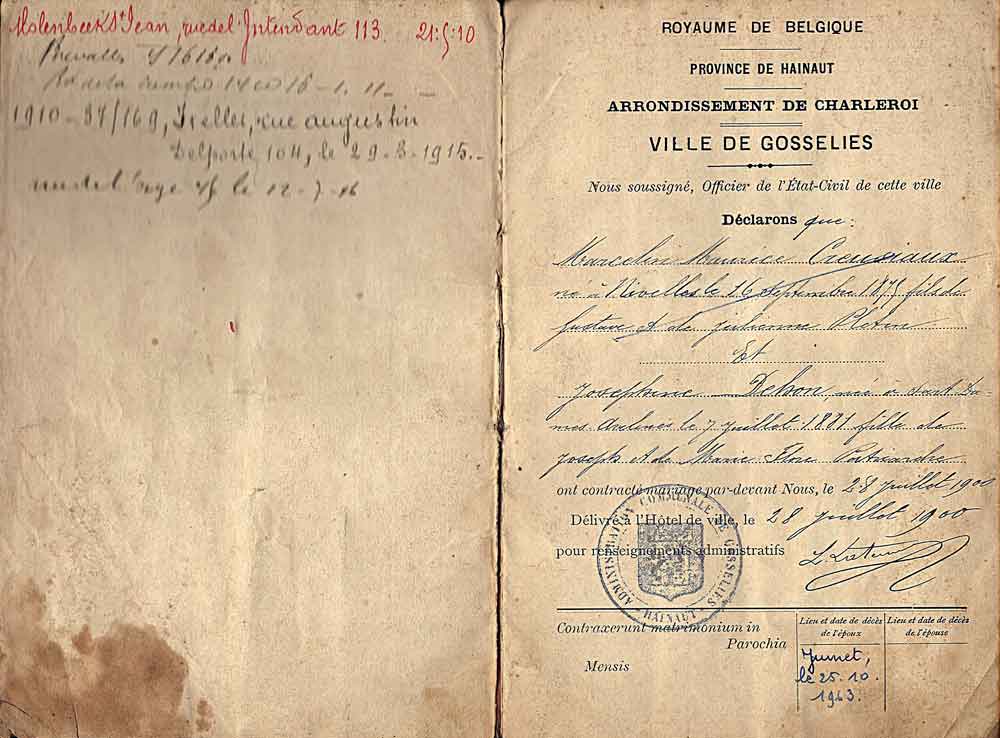 Molenbeek St Jean, rue de l'Intendant 113. 21-5-10
1910-87/169, Ixelles, rue augustin
Delporte, 104, le 29-3-1915.-
le 12-7-16
ROYAUME DE BELGIQUE
PROVINCE DE HAINAUT
ARRONDISSEMENT DE CHARLEROI
VILLE DE GOSSELIES
Nous soussigné, Officier de l'État-Civil de cette ville
Déclarons que:
Marcelin Maurice Creusiaux
né à Nivelles le 16 septembre 1875 fils de
Gustave et de julienne Plotin
Et
Josephine Dehon, née à Saint Da-
mes Avelines le 7 juillet 1881 fille de
Joseph et de Marie Flore
ont contracté mariage par-devant Nous, le 28 juillet 1900
Délivré à l'Hôtel de ville, le 28 juillet 1900
pour renseignements administratifs
ADMINISTRATION COMMUNALE DE GOSSELIES
- HAINAUT -
Contraxerunt matrimonium in
Parochia
Mensis
Lieu et date de décès
de l'époux
Jumet,
le 25.10.
1963.
Lieu et date de décès
de l'épouse